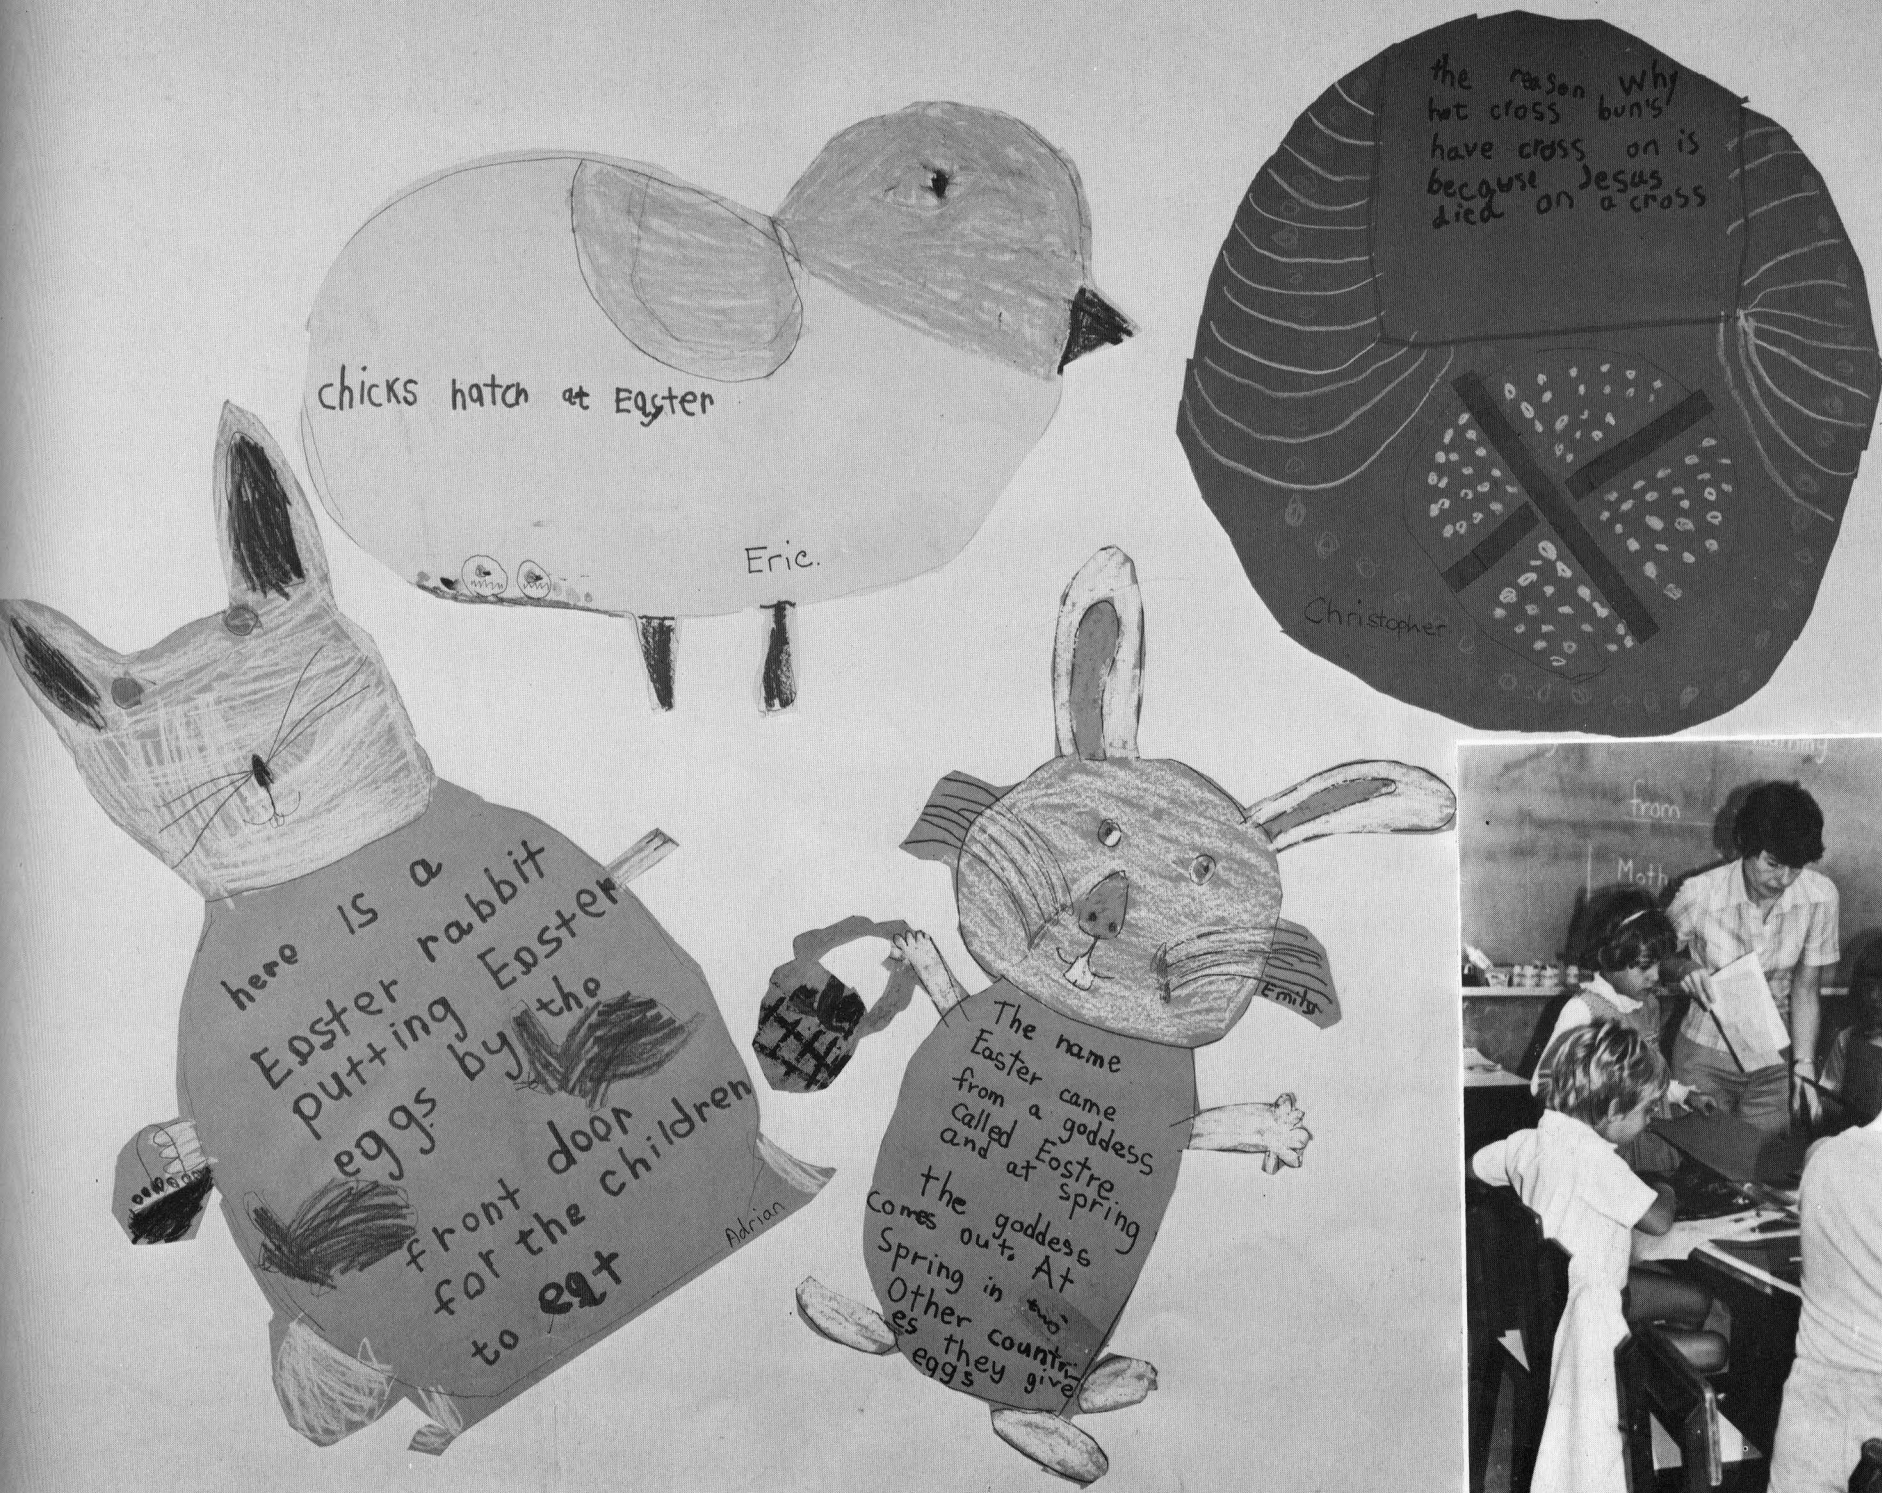 chicks hatch at Easter
Eric.
the reason why
hot cross bun's
have cross on is
because Jesus
died on a cross
Christopher
here is a
Easter rabbit
putting Easter
eggs by the
front door
for the children
to eat
Adrian
Emily
The name
Easter came
from a goddess
called Eostre
and at spring
the goddess
comes out. At
Spring in
Other countri
es they give
eggs
from
Math